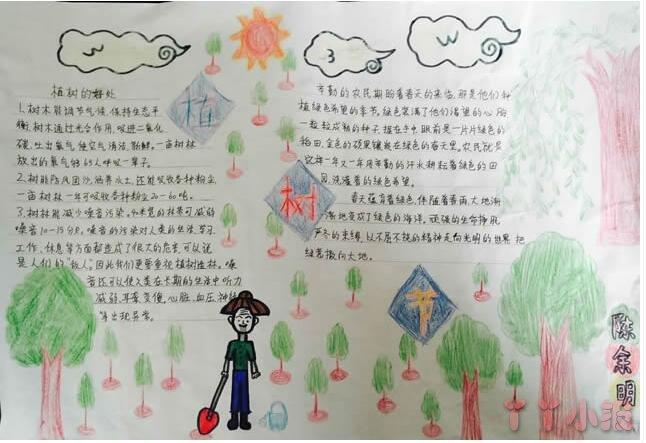 植树的好处
1.树木能调节气候,保持生态平
衡。树木通过光合作用,吸进二氧化
碳,吐出氧气,使空气清洁、新鲜。一亩树林
放出的氧气够65人呼吸一辈子。
2.树能防风固沙,涵养水土,还能吸收各种粉尘,
一亩树林一年可吸收各种粉尘20-60吨。
3.树林能减少噪音污染。40米宽的林带可减弱
噪音10-15分贝。噪音的污染对人类的生活、学习、
工作、休息等方面都造成了很大的危害,可以说
是人们的"敌人"。因此我们更要重视植树造林。噪
音还可以使人类在长期的生活中听力
减弱,耳聋变傻,心脏、血压、神经
等出现异常。
辛勤的农民期盼着春天的来临,那是他们种
植绿色希望的季节。绿色装满了他们渴望的心胸
一粒粒成熟的种子握在手中,眼前是一片片绿色的
稻田,金色的硕果镶嵌在绿色的春天里。农民就是
这样一年又一年用辛勤的汗水耕耘着绿色的田
园,浇灌着的绿色希望。
春天蕴育着绿色,伴随着春雨大地渐
渐地变成了绿色的海洋。顽强的生命挣脱
严冬的束缚,以不屈不挠的精神走向光明的世界,把
绿意撒向大地。
植
树
节
陈余明
丫丫小报